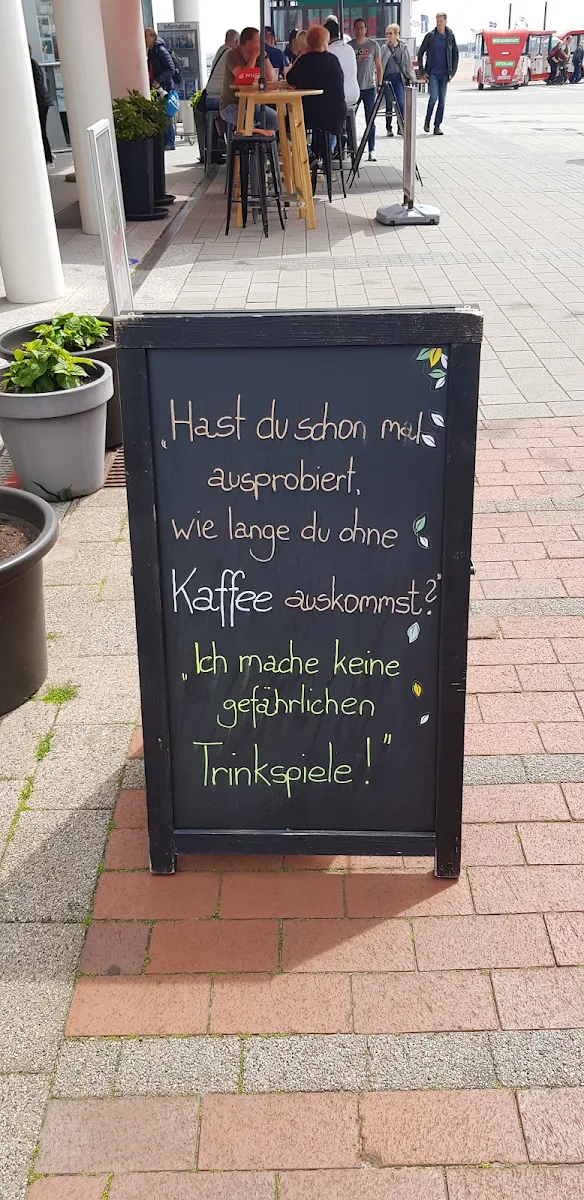 Information
„Hast du schon mal
ausprobiert,
wie lange du ohne
Kaffee auskommst?"
„Ich mache keine
gefährlichen
Trinkspiele!"